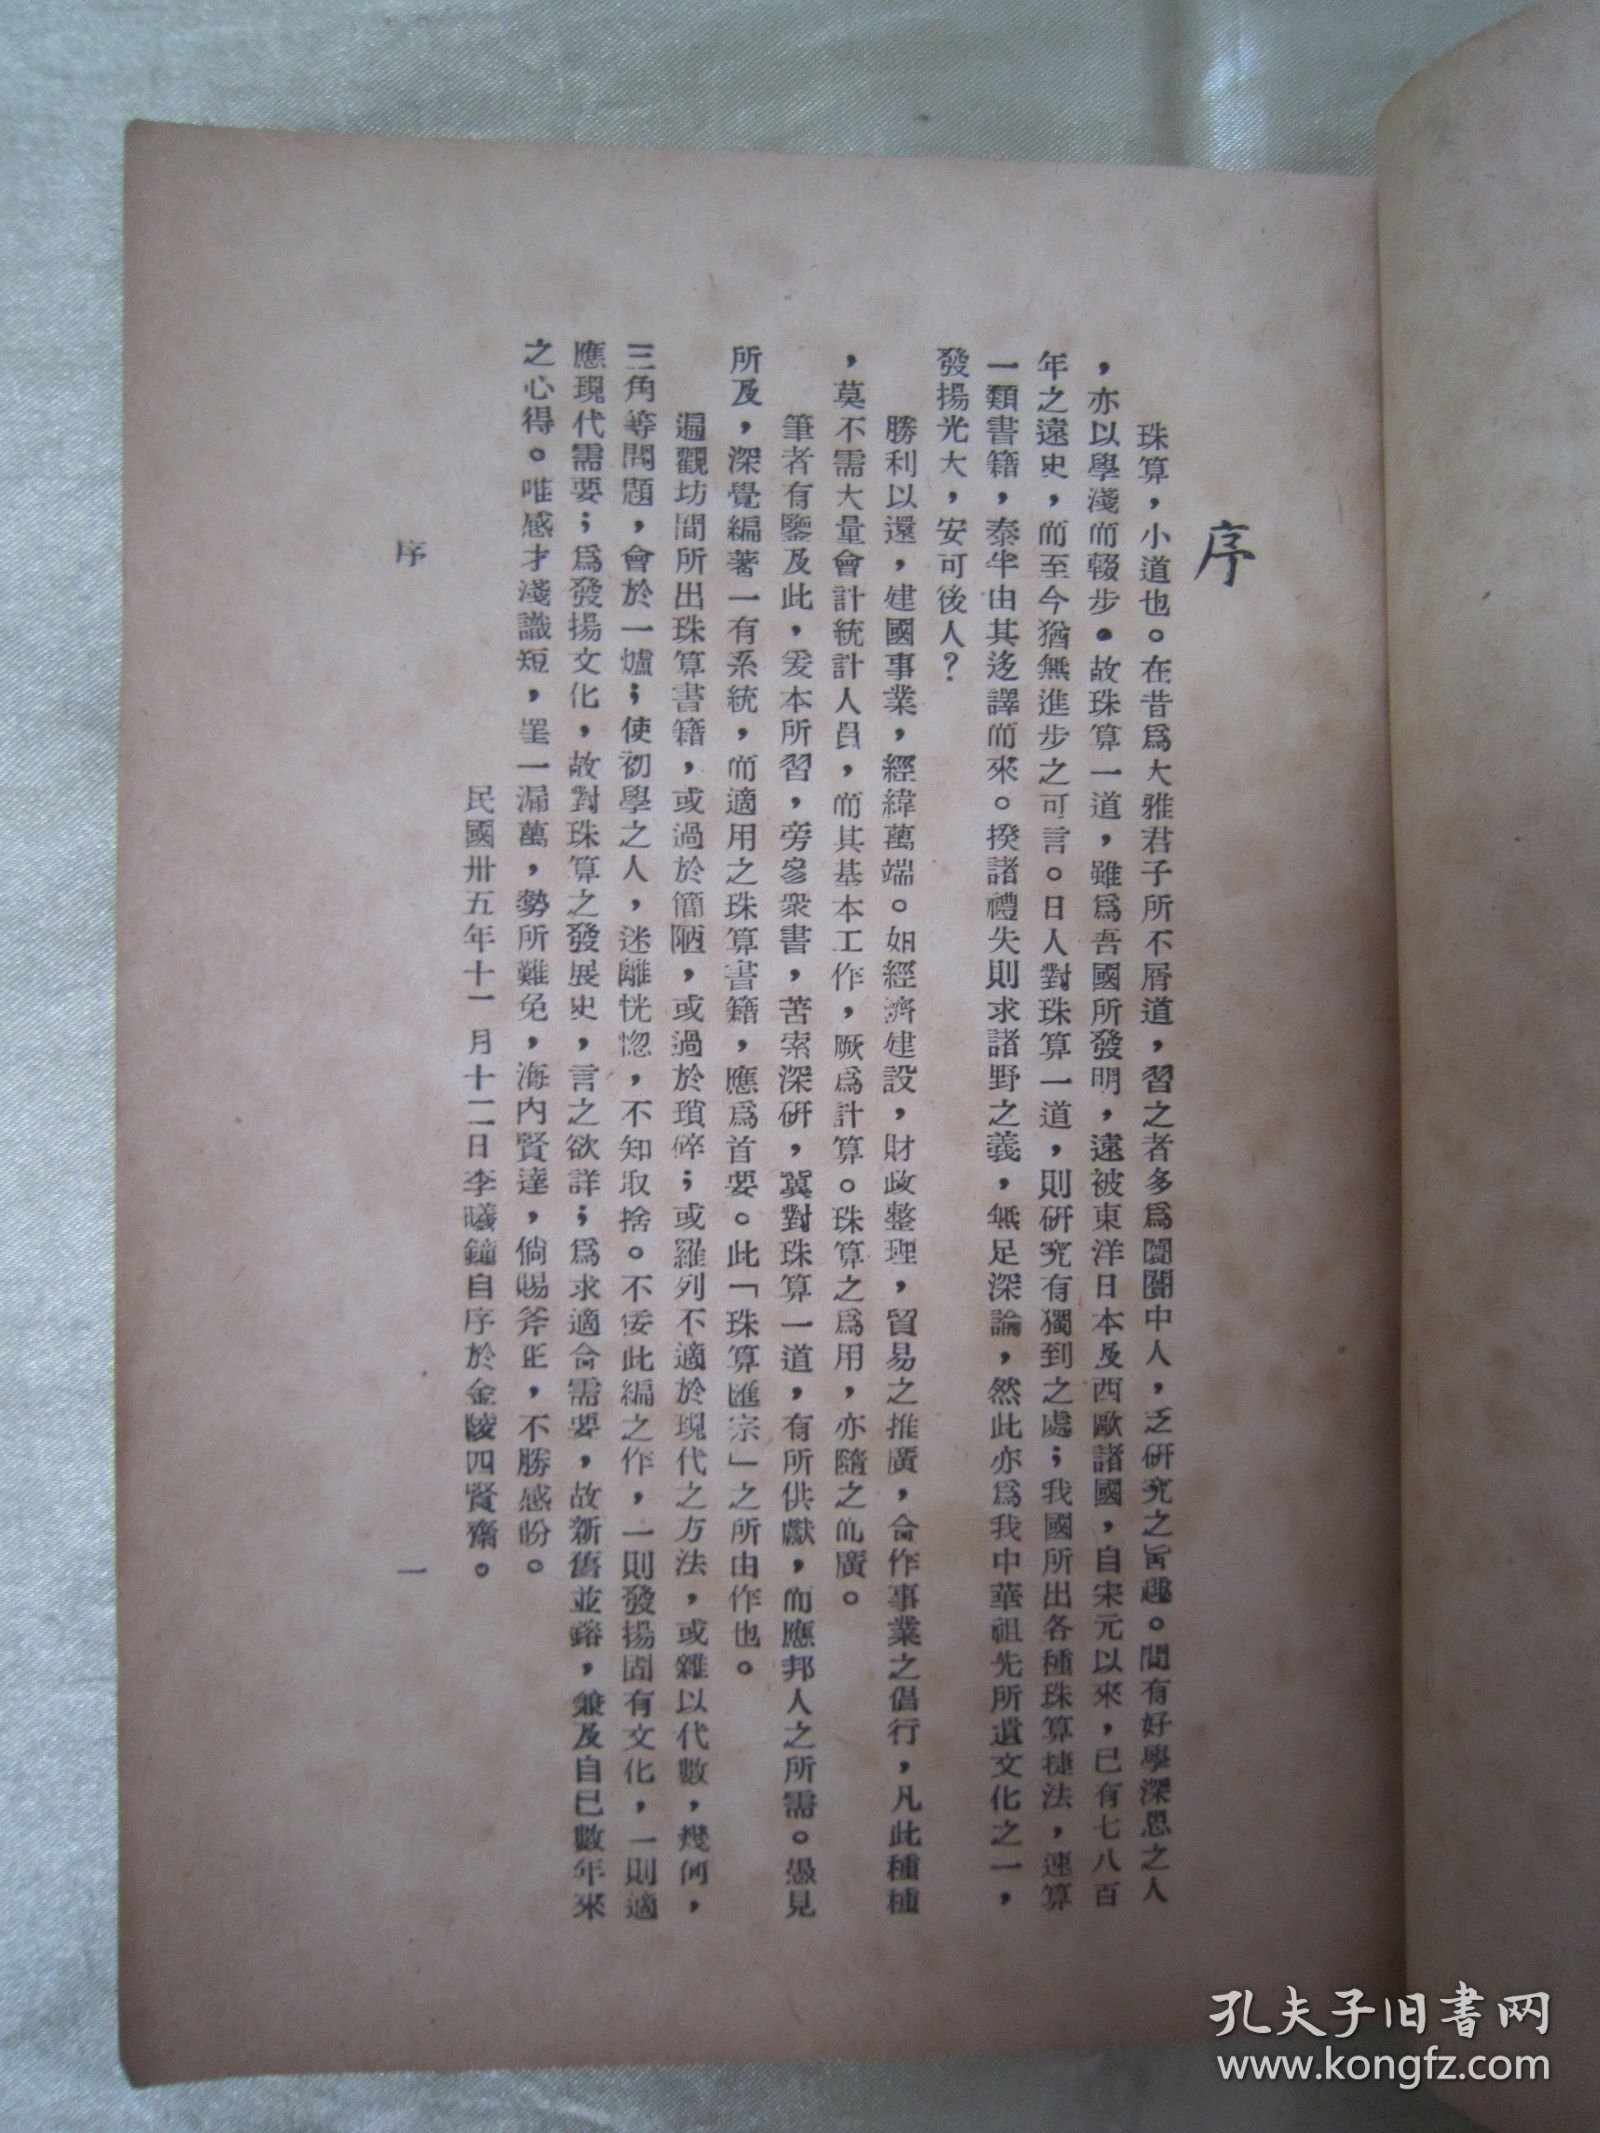 序
珠算，小道也。在昔爲大雅君子所不屑道，習之者多爲闤闠中人，乏研究之旨趣。間有好學深思之人
，亦以學淺而輟步。故珠算一道，雖爲吾國所發明，遠被東洋日本及西歐諸國，自宋元以來，已有七八百
年之遠史，而至今猶無進步之可言。日人對珠算一道，則研究有獨到之處；我國所出各種珠算捷法，速算
一類書籍，泰半由其迻譯而來。揆諸禮失則求諸野之義，無足深論，然此亦爲我中華祖先所遺文化之一，
發揚光大，安可後人？
勝利以還，建國事業，經緯萬端。如經濟建設，財政整理，貿易之推廣，合作事業之倡行，凡此種種
，莫不需大量會計統計人員，而其基本工作，厥爲計算。珠算之爲用，亦隨之而廣。
筆者有鑒及此，爰本所習，旁參衆書，苦索深研，冀對珠算一道，有所供獻，而應邦人之所需。愚見
所及，深覺編著一有系統，而適用之珠算書籍，應爲首要。此「珠算匯宗」之所由作也。
遍觀坊間所出珠算書籍，或過於簡陋，或過於瑣碎；或羅列不適於現代之方法，或雜以代數，幾何，
三角等問題，會於一爐；使初學之人，迷離恍惚，不知取捨。不佞此編之作，一則發揚固有文化，一則適
應現代需要；爲發揚文化，故對珠算之發展史，言之欲詳；爲求適合需要，故新舊並鎔，兼及自已數年來
之心得。唯感才淺識短，罣一漏萬，勢所難免，海內賢達，倘賜斧正，不勝感盼。
民國卅五年十一月十二日李曦鐘自序於金陵四賢齋。
序
一
孔夫子旧书网
www.kongfz.com